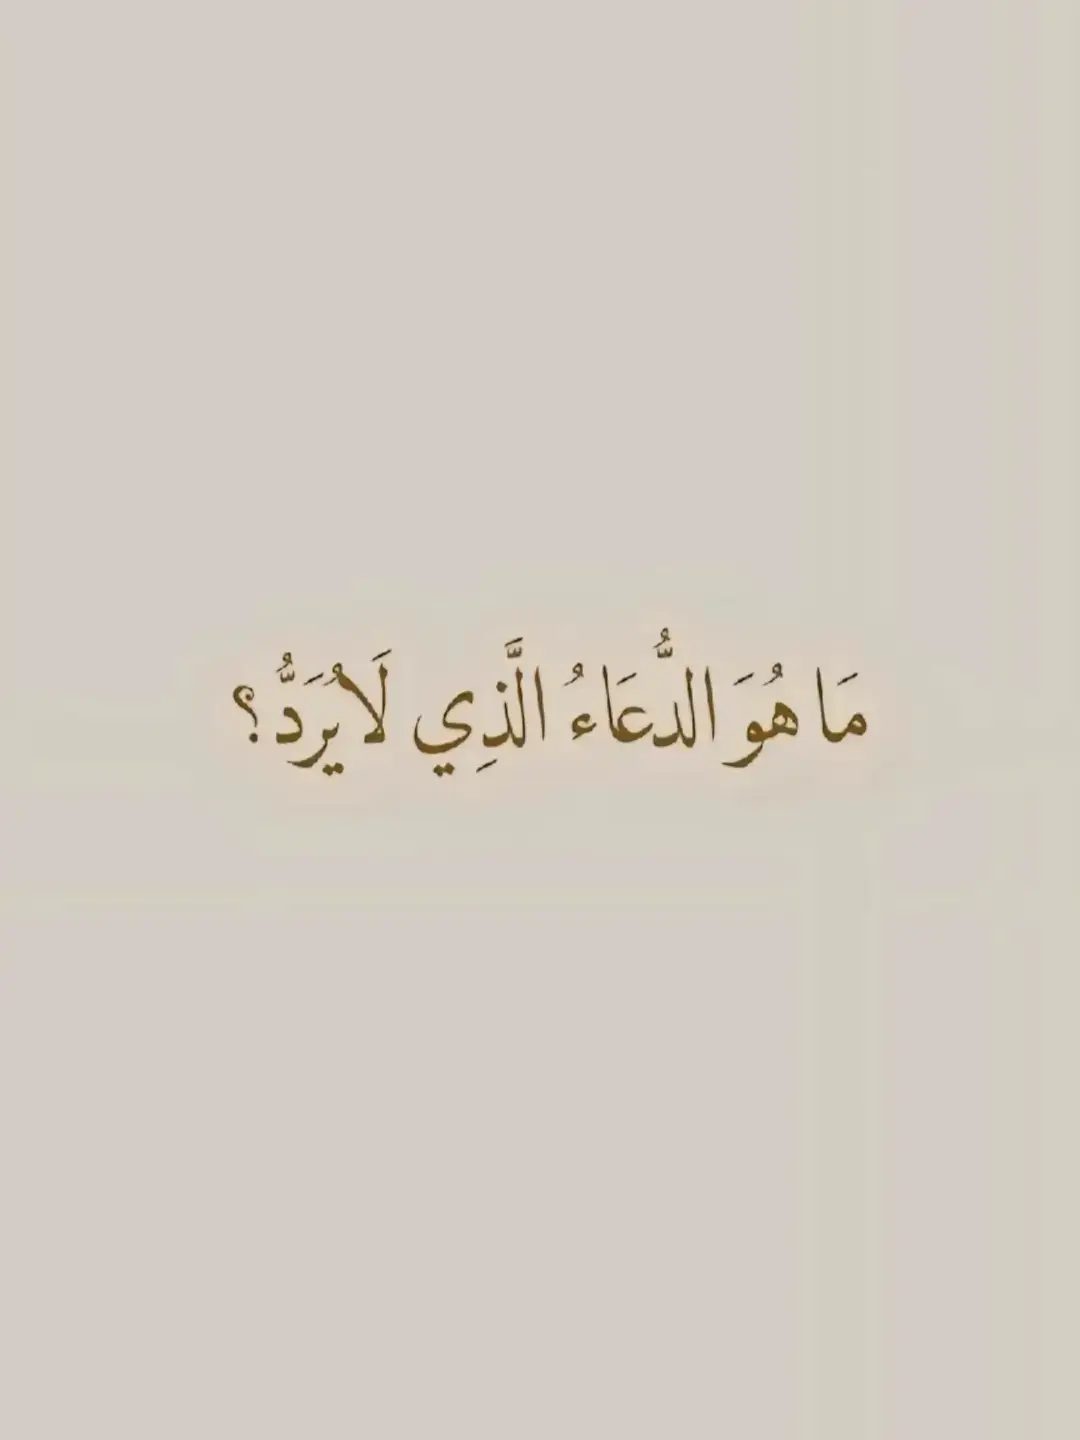 مَا هُوَ الدُّعَاءُ الَّذِي لَا يُرَدُّ؟